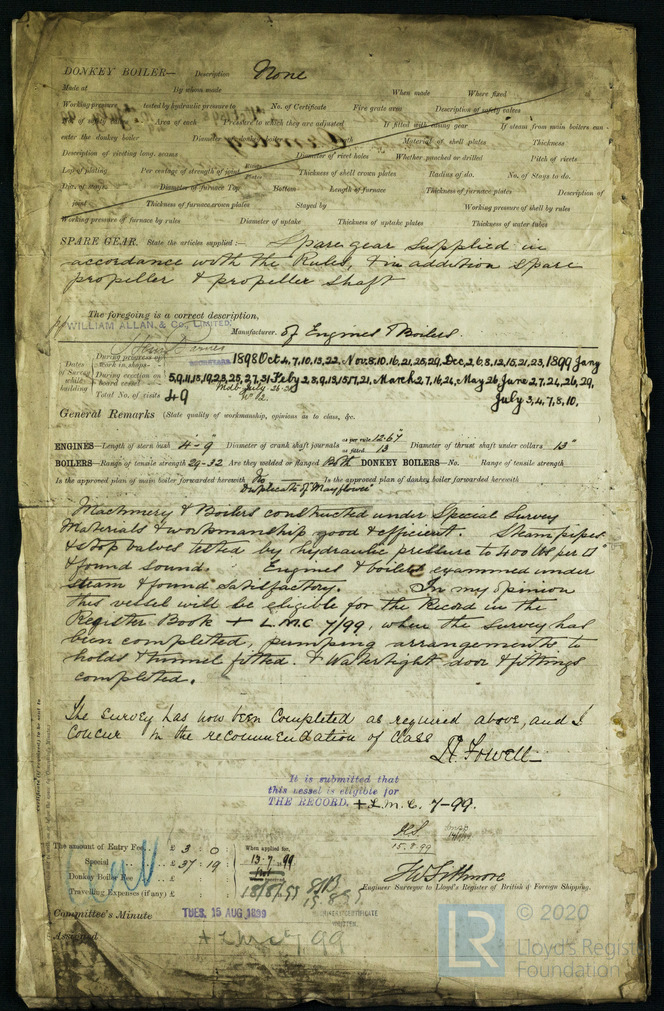 DONKEY BOILER— Description None
Made at By whom made When made Where fixed
Working pressure tested by hydraulic pressure to No. of Certificate Fire grate area Description of safety valves
No. of safety valves Area of each Pressure to which they are adjusted If fitted with easing gear If steam from main boilers can
enter the donkey boiler Diameter of donkey boiler Length Material of shell plates Thickness
Description of riveting long. seams Diameter of rivet holes Whether punched or drilled Pitch of rivets
Lap of plating Per centage of strength of joint Rivets Plates Thickness of shell crown plates Radius of do. No. of Stays to do.
Dia. of stays. Diameter of furnace Top Bottom Length of furnace Thickness of furnace plates Description of
joint Thickness of furnace crown plates Stayed by Working pressure of shell by rules
Working pressure of furnace by rules Diameter of uptake Thickness of uptake plates Thickness of water tubes
SPARE GEAR. State the articles supplied:— Spare gear supplied in
accordance with the Rules, & in addition spare
propeller & propeller shaft
The foregoing is a correct description,
WILLIAM ALLAN & CO., LIMITED. Manufacturer. of Engines & Boilers.
SECRETARY
Dates of Survey while building
During progress of work in shops— 1898 Oct 4, 7, 10, 13, 22, Nov. 8, 10, 16, 21, 25, 29, Dec. 2, 6, 8, 12, 15, 21, 23, 1899 Jany
During erection on board vessel 5, 9, 11, 13, 19, 23, 25, 27, 31 Feby 2, 8, 9, 13, 15, 17, 21, March 2, 7, 16, 24, May 26 June 2, 7, 24, 26, 29,
Total No. of visits 49 July 3, 4, 7, 8, 10.
General Remarks (State quality of workmanship, opinions as to class, &c.
ENGINES—Length of stern bush 4'-9" Diameter of crank shaft journals as per rule 12.67 as fitted 13 Diameter of thrust shaft under collars 13"
BOILERS—Range of tensile strength 29-32 Are they welded or flanged Both DONKEY BOILERS—No. Range of tensile strength
Is the approved plan of main boiler forwarded herewith No Is the approved plan of donkey boiler forwarded herewith
Duplicate of "Mayflower"
Machinery & Boilers constructed under Special Survey
Materials & workmanship good & efficient. Steam pipes
& stop valves tested by hydraulic pressure to 400 lbs per □"
& found sound. Engines & boilers examined under
steam & found satisfactory. In my opinion
this vessel will be eligible for the Record in the
Register Book + L.M.C 7/99, when the survey has
been completed, pumping arrangements to
holds & tunnel fitted. & Watertight door & fittings
completed.
The survey has now been completed as required above, and I
concur in the recommendation of class
R. Fowell
It is submitted that
this vessel is eligible for
THE RECORD. + L.M.C. 7-99.
15.8.99
The amount of Entry Fee £ 3 : 0 : When applied for,
Special £ 37 : 19 : 13.7.99
Donkey Boiler Fee £
Travelling Expenses (if any) £
Engineer Surveyor to Lloyd's Register of British & Foreign Shipping.
Committee's Minute TUES. 15 AUG 1899
MACHINERY CERTIFICATE WRITTEN.
Assigned + LMC 7.99
LR © 2020
Lloyd's Register
Foundation